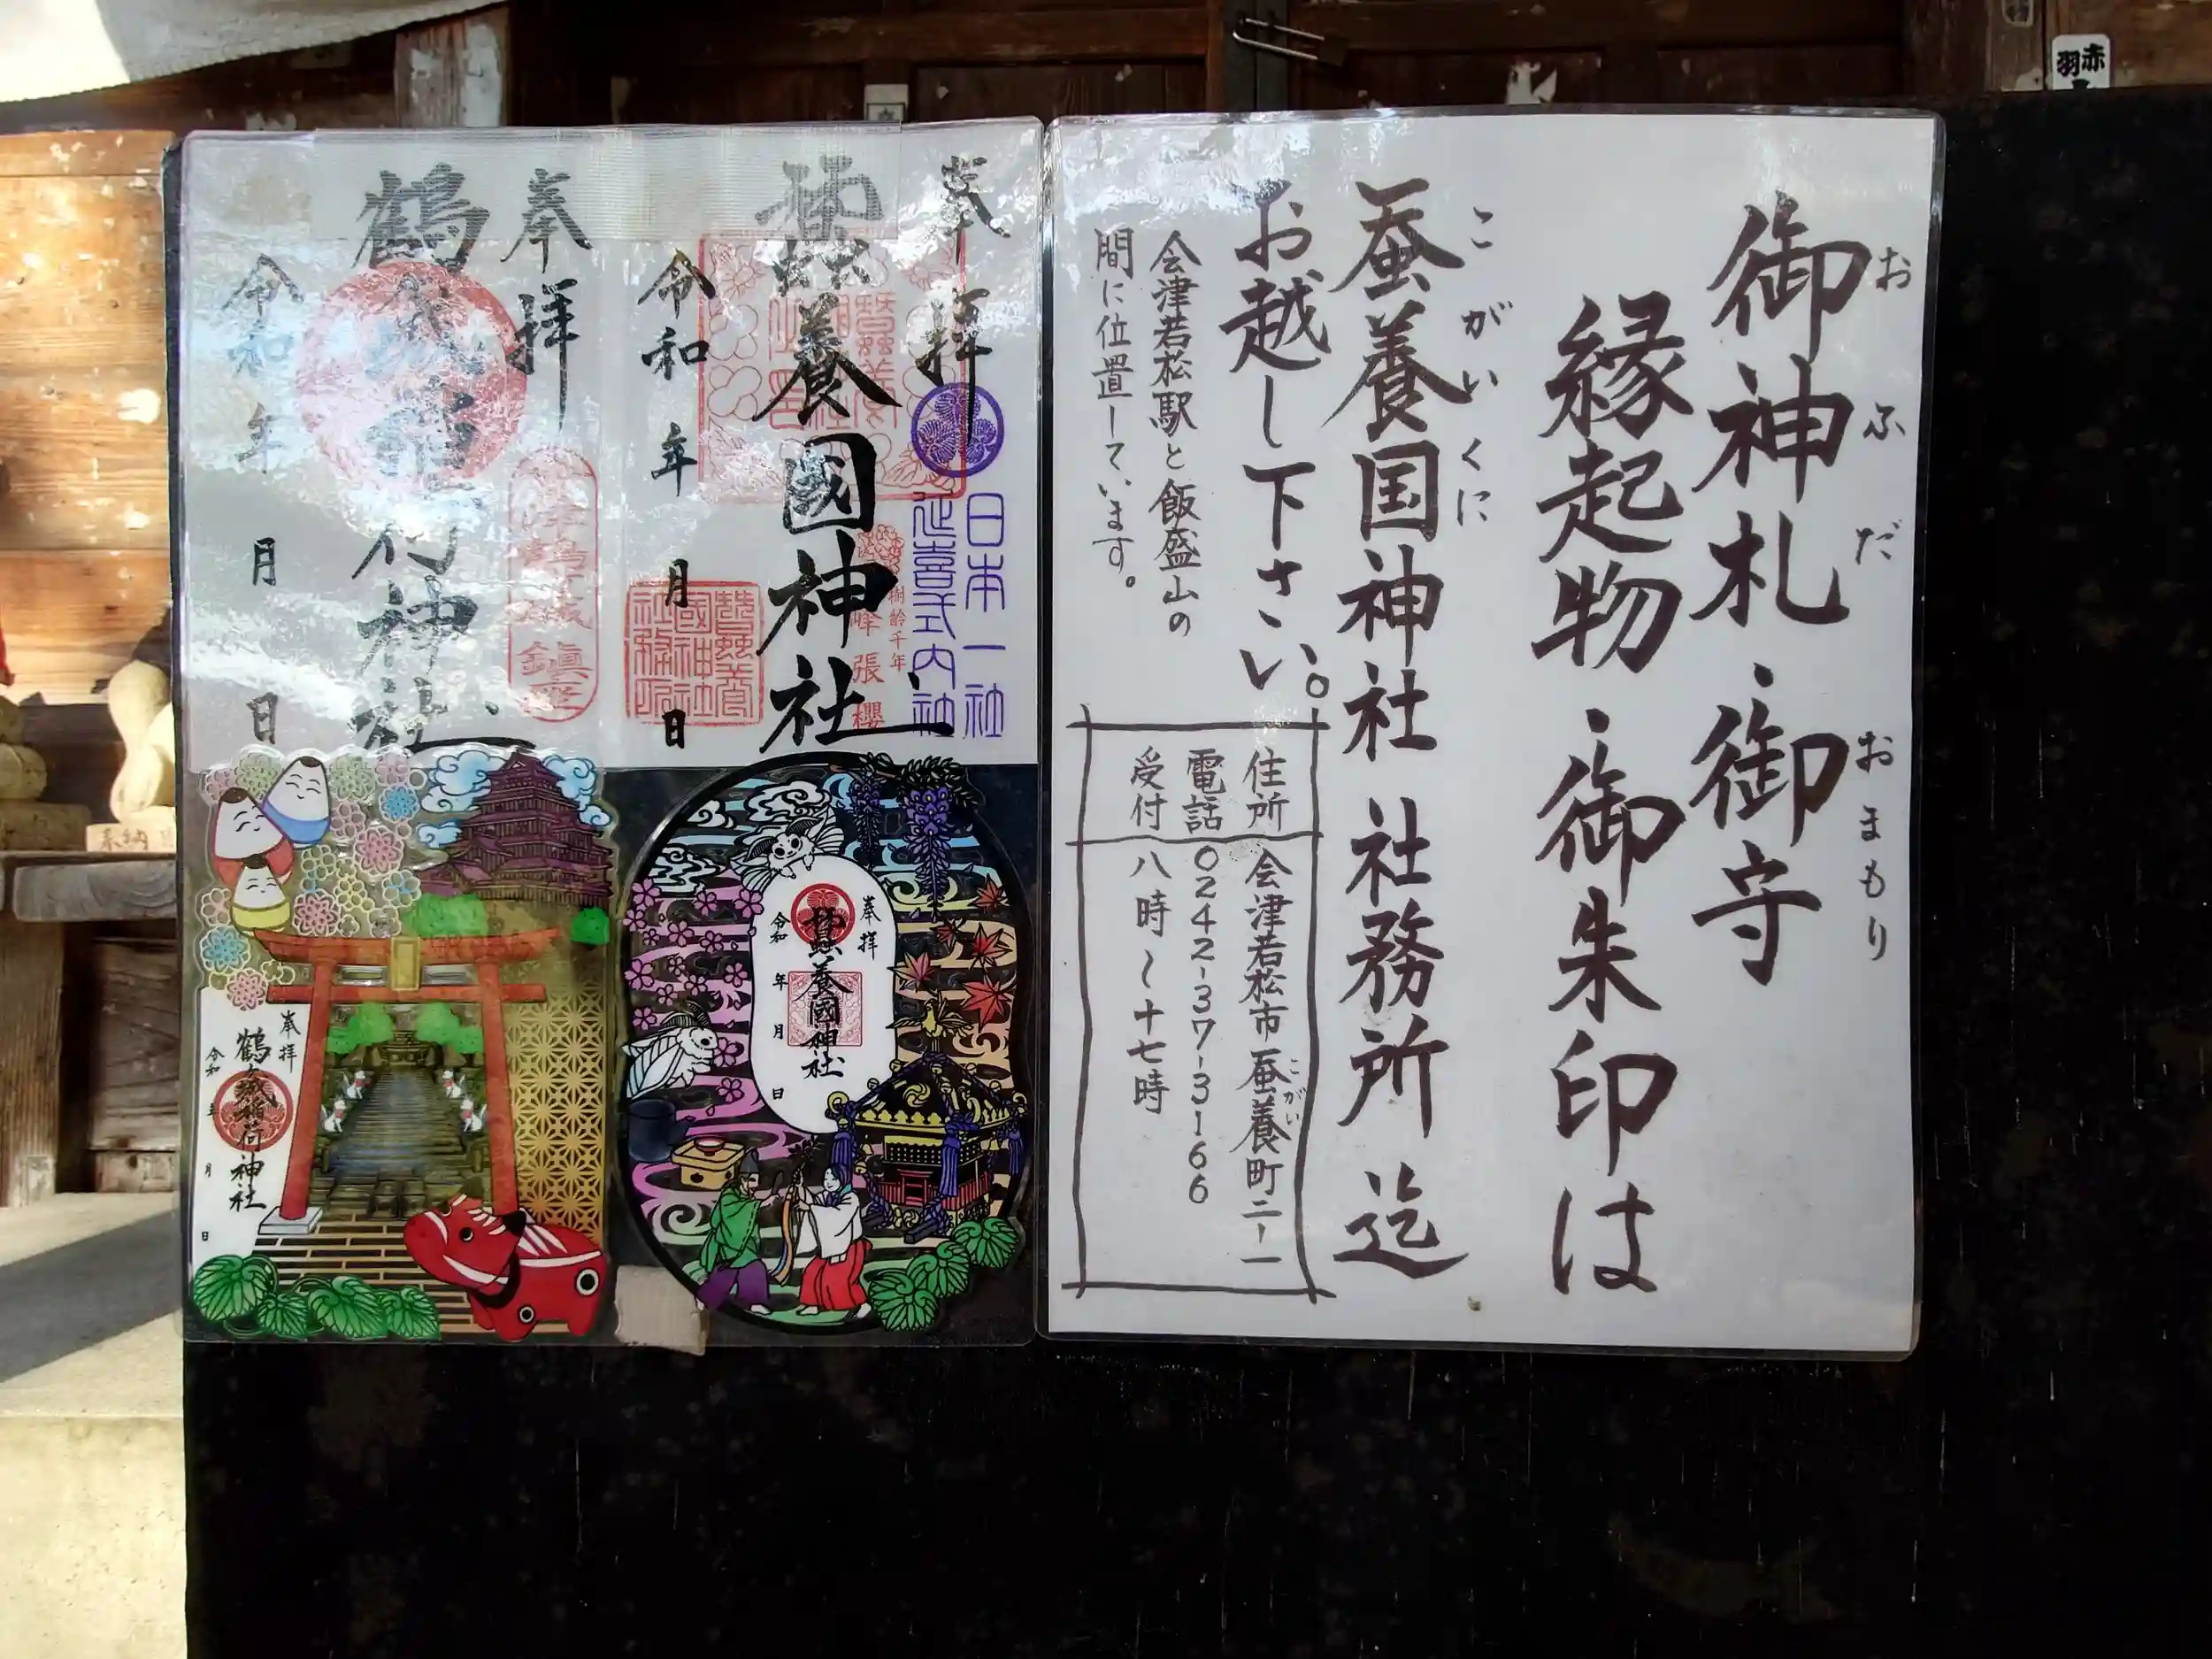 御神札・御守
おふだ
おまもり
縁起物・御朱印は
蚕養国神社 社務所 迄
こがいくに
お越し下さい。
会津若松駅と飯盛山の
間に位置しています。
住所 会津若松市蚕養町二-一
こがい
電話 0242-37-3166
受付 八時~十七時
奉拝
日本一社
延喜式内社
樹齢千年
峰張櫻
蠶養國神社
令和 年 月 日
奉拝
鶴城稲荷神社
令和 年 月 日
奉拝
蠶養國神社
令和 年 月 日
奉拝
鶴城稲荷神社
令和 年 月 日
赤羽
奉納